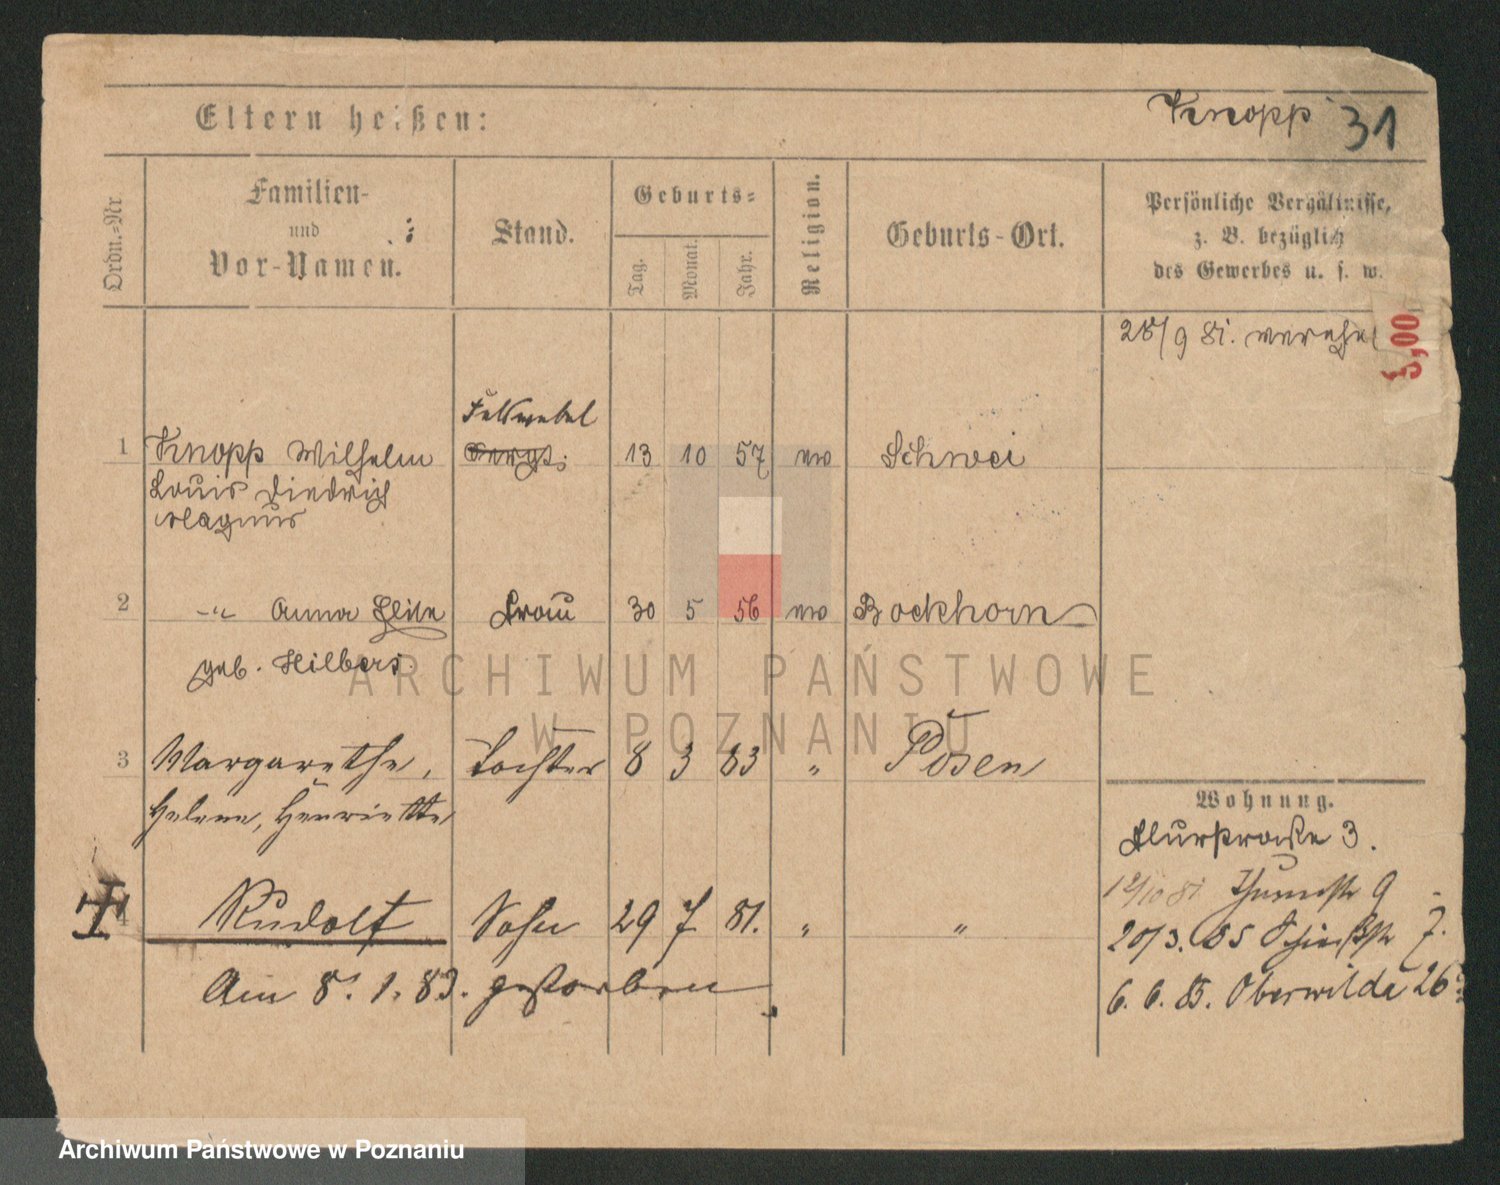 Eltern heißen:
Knopp 31
Ordn.=Nr
Familien-
und
Vor-Namen.
Stand.
Geburts=
Tag.
Monat.
Jahr.
Religion.
Geburts-Ort.
Persönliche Verhältnisse,
z. B. bezüglich
des Gewerbes u. s. w.
28/9 81. verehel
3,00
Feldwebel
1 Knopp Wilhelm Sergt. 13 10 57 ev Schwei
Louis Diedrich
Magnus
2 -"- Anna Elise Frau 30 5 56 ev Bockhorn
geb. Hilbers
ARCHIWUM PAŃSTWOWE
W POZNANIU
3 Margarethe, Tochter 8 3 83 " Posen
Helene, Henriette
Wohnung.
Flurstraße 3.
12/10 81 9
4 Rudolf Sohn 29 7 81. " "
20/3. 85 7.
Am 8. 1. 83. gestorben
6. 6. 85. Oberwilda 26
Archiwum Państwowe w Poznaniu